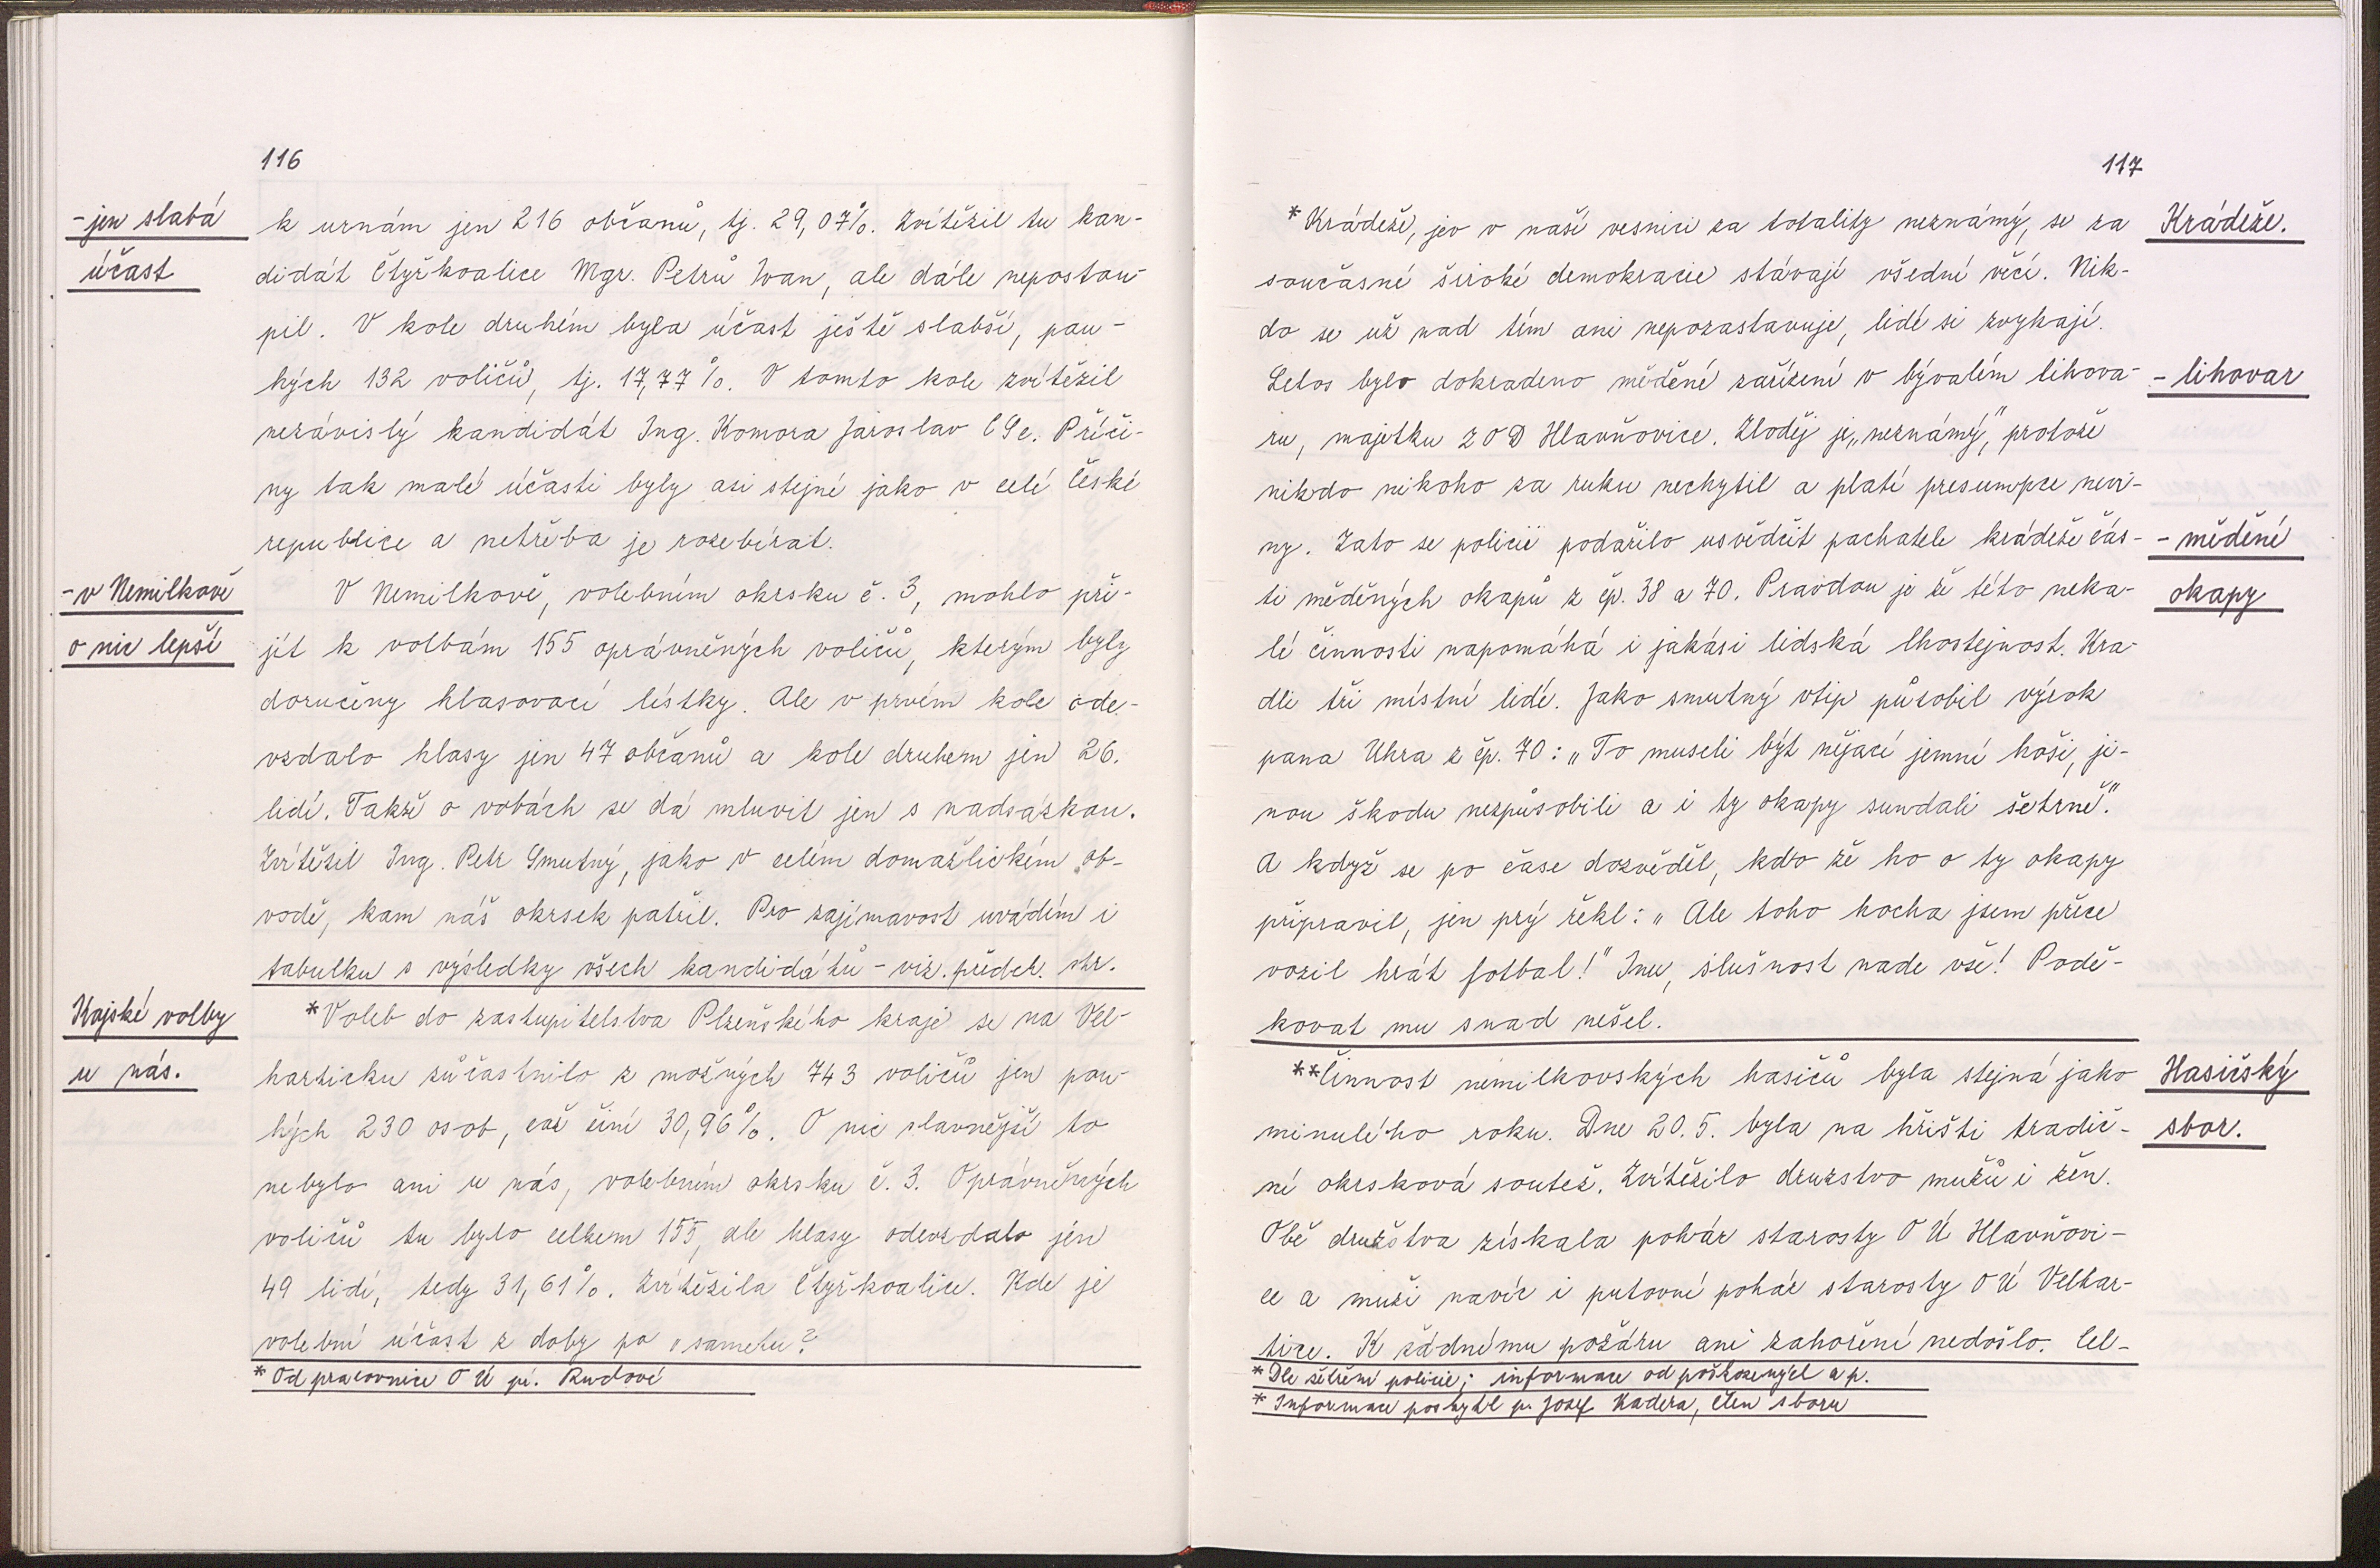 116
- jen slabá
účast
k urnám jen 216 občanů, tj. 29,07%. Zvítězil tu kan-
didát Čtyřkoalice Mgr. Petrů Ivan, ale dále nepostou-
pil. V kole druhém byla účast ještě slabší, pou-
hých 132 voličů, tj. 17,77%. V tomto kole zvítězil
nezávislý kandidát Ing. Komora Jaroslav CSc. Příči-
ny tak malé účasti byly asi stejné jako v celé České
republice a netřeba je rozebírat.
- v Nemilkově
o nic lepší
V Nemilkově, volebním okrsku č. 3, mohlo při-
jít k volbám 155 oprávněných voličů, kterým byly
doručeny hlasovací lístky. Ale v prvém kole ode-
vzdalo hlasy jen 47 občanů a kole druhem jen 26.
lidí. Takže o vobách se dá mluvit jen s nadsázkou.
Zvítězil Ing. Petr Smutný, jako v celém domažlickém ob-
vodě, kam náš okrsek patřil. Pro zajímavost uvádím i
tabulku s výsledky všech kandidátů - viz. předch. str.
Krajské volby
u nás.
*Voleb do zastupitelstva Plzeňského kraje se na Vel-
harticku zůčastnilo z možných 743 voličů jen pou-
hých 230 osob, což činí 30,96%. O nic slavnější to
nebylo ani u nás, volebním okrsku č. 3. Oprávněných
voličů tu bylo celkem 155, ale hlasy odevzdalo jen
49 lidí, tedy 31,61%. Zvítězila Čtyřkoalice. Kde je
volební účast z doby po „sametu?
* Od pracovnice OÚ pí. Rudové
117
*Krádeže, jev v naší vesnici za totality neznámý, se za
současné široké demokracie stávají všední věcí. Nik-
do se už nad tím ani nepozastavuje, lidé si zvykají.
Letos bylo dokradeno měděné zařízení v bývalém lihova-
ru, majetku ZOD Hlavňovice. Zloděj je „neznámý," protože
nikdo nikoho za ruku nechytil a platí presumpce nevi-
ny. Zato se policii podařilo usvědčit pachatele krádeže čás-
ti měděných okapů z čp. 38 a 70. Pravdou je že této neka-
lé činnosti napomáhá i jakási lidská lhostejnost. Kra-
dli tři místní lidé. Jako smutný vtip působil výrok
pana Uhra z čp. 70: „To museli být nějací jemní hoši, ji-
nou škodu nezpůsobili a i ty okapy sundali šetrně."
A když se po čase dozvěděl, kdo že ho o ty okapy
připravil, jen prý řekl: „Ale toho hocha jsem přece
vozil hrát fotbal!" Inu, slušnost nade vše! Podě-
kovat mu snad nešel.
Krádeže.
- lihovar
- měděné
okapy
**Činnost nemilkovských hasičů byla stejná jako
minulého roku. Dne 20.5. byla na hřišti tradič-
ní okrsková soutež. Zvítězilo druzstvo mužů i žen.
Obě družstva získala pohár starosty OÚ Hlavňovi-
ce a muži navíc i putovní pohár starosty OÚ Velhar-
tice. K žádnému požáru ani zahoření nedošlo. Cel-
Hasičský
sbor.
* Dle šetření policie; informace od poškozených a p.
* Informace poskytl p. Josef Kadera, člen sboru